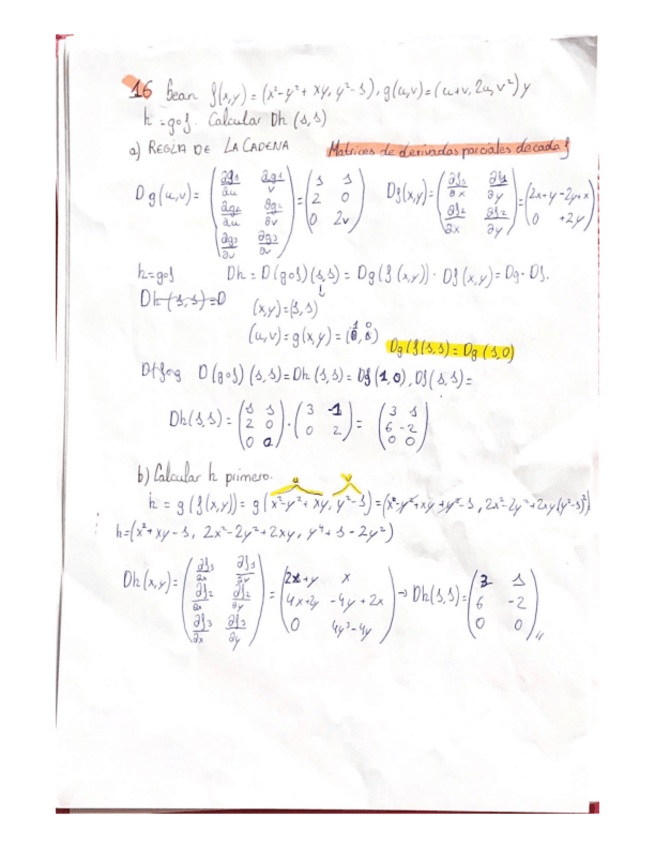 16 Sean f(x,y) = (x²-y²+xy, y²-1), g(u,v) = (u+v, 2u, v²) y
h = g∘f. Calcular Dh (1,1)
a) REGLA DE LA CADENA Matrices de derivadas parciales de cada f
Dg(u,v) = (∂g1/∂u ∂g1/v ; ∂g2/∂u ∂g2/∂v ; ∂g3/∂v ∂g3/∂v) = (1 1 ; 2 0 ; 0 2v) Df(x,y) = (∂f1/∂x ∂f1/∂y ; ∂f2/∂x ∂f2/∂y) = (2x+y -2y+x ; 0 +2y)
h = g∘f Dh = D(g∘f)(1,1) = Dg(f(x,y)) · Df(x,y) = Dg·Df.
Dh(1,1)=D (x,y) = (1,1)
(u,v) = g(x,y) = (1, 0)
Dg(f(1,1) = Dg(1,0)
D(g∘f)(1,1) = Dh(1,1) = Df(1,0), Df(1,1) =
Dh(1,1) = (1 1 ; 2 0 ; 0 0) · (3 -1 ; 0 2) = (3 1 ; 6 -2 ; 0 0)
b) Calcular h primero.
u v
h = g(f(x,y)) = g(x²-y²+xy, y²-1) = (x²-y²+xy+y²-1, 2x²-2y²+2xy, (y²-1)²)
h = (x²+xy-1, 2x²-2y²+2xy, y⁴+1-2y²)
Dh(x,y) = (∂f1/∂x ∂f1/∂y ; ∂f2/∂x ∂f2/∂y ; ∂f3/∂x ∂f3/∂y) = (2x+y x ; 4x+2y -4y+2x ; 0 4y³-4y) → Dh(1,1) = (3 1 ; 6 -2 ; 0 0)